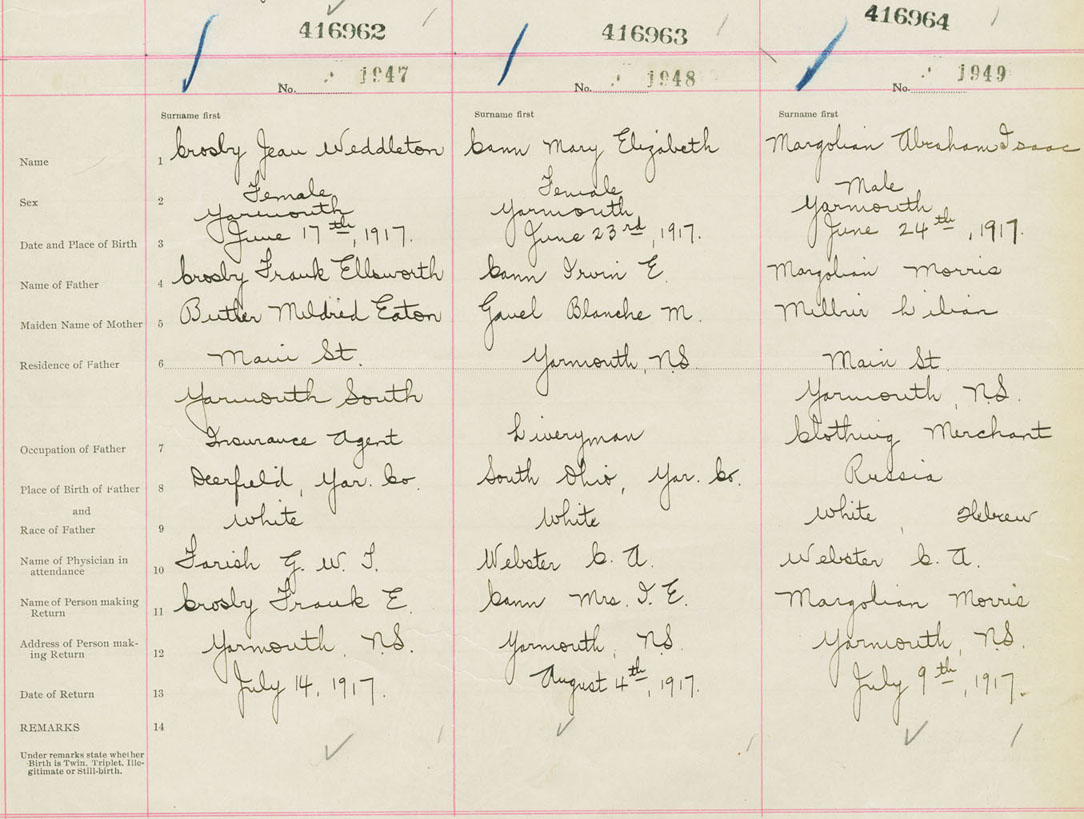 416962
416963
416964
No. 1947
No. 1948
No. 1949
Surname first
Surname first
Surname first
Name 1 Crosby Jean Weddleton
Cann Mary Elizabeth
Margolian Abraham Isaac
Sex 2 Female
Female
Male
Yarmouth
Yarmouth
Yarmouth
Date and Place of Birth 3 June 17th, 1917.
June 23rd, 1917.
June 24th, 1917.
Name of Father 4 Crosby Frank Ellsworth
Cann Irvin E.
Margolian Morris
Maiden Name of Mother 5 Butler Mildred Eaton
Gavel Blanche M.
Lilian
Residence of Father 6 Main St.
Yarmouth, N.S.
Main St.
Yarmouth South
Yarmouth, N.S.
Occupation of Father 7 Insurance Agent
Liveryman
Clothing Merchant
Place of Birth of Father 8 Deerfield, Yar. Co.
South Ohio, Yar. Co.
Russia
and
Race of Father 9 White
White
White, Hebrew
Name of Physician in
attendance 10 Farish G. W. T.
Webster C. A.
Webster C. A.
Name of Person making
Return 11 Crosby Frank E.
Cann Mrs. I. E.
Margolian Morris
Address of Person mak-
ing Return 12 Yarmouth, N.S.
Yarmouth, N.S.
Yarmouth, N.S.
Date of Return 13 July 14, 1917.
August 4th, 1917.
July 9th, 1917.
REMARKS 14
Under remarks state whether
Birth is Twin, Triplet, Ille-
gitimate or Still-birth.